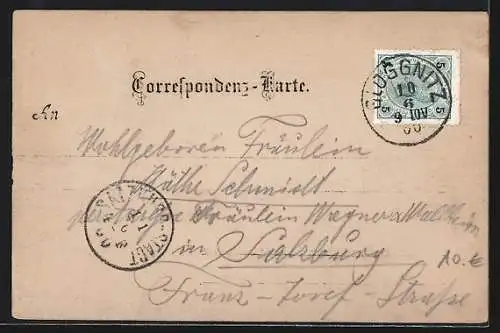 Correspondenz-Karte.
An
5 5
5 5
GLOGGNITZ
10
6
9 V01
00
Wohlgeboren Fräulein
Käthe Schmidt
per Fräulein Wagner
in Salzburg
Franz-Josef-Straße
SALZBURG-STADT
11
6
00
10.€